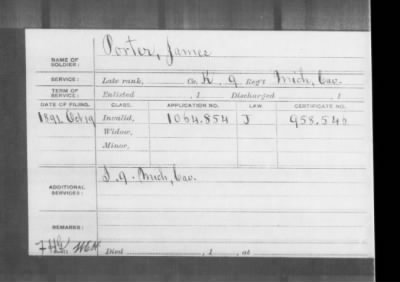 Porter, James
NAME OF SOLDIER:
SERVICE: Late rank, Co. K, 9 Reg't Mich, Cav.
TERM OF SERVICE: Enlisted , 1 Discharged , 1
DATE OF FILING. CLASS. APPLICATION NO. LAW. CERTIFICATE NO.
1892 Oct 19 Invalid, 1064.854 J 958.546
Widow,
Minor,
ADDITIONAL SERVICES: 9. Mich, Cav.
REMARKS:
Died , 1 , at